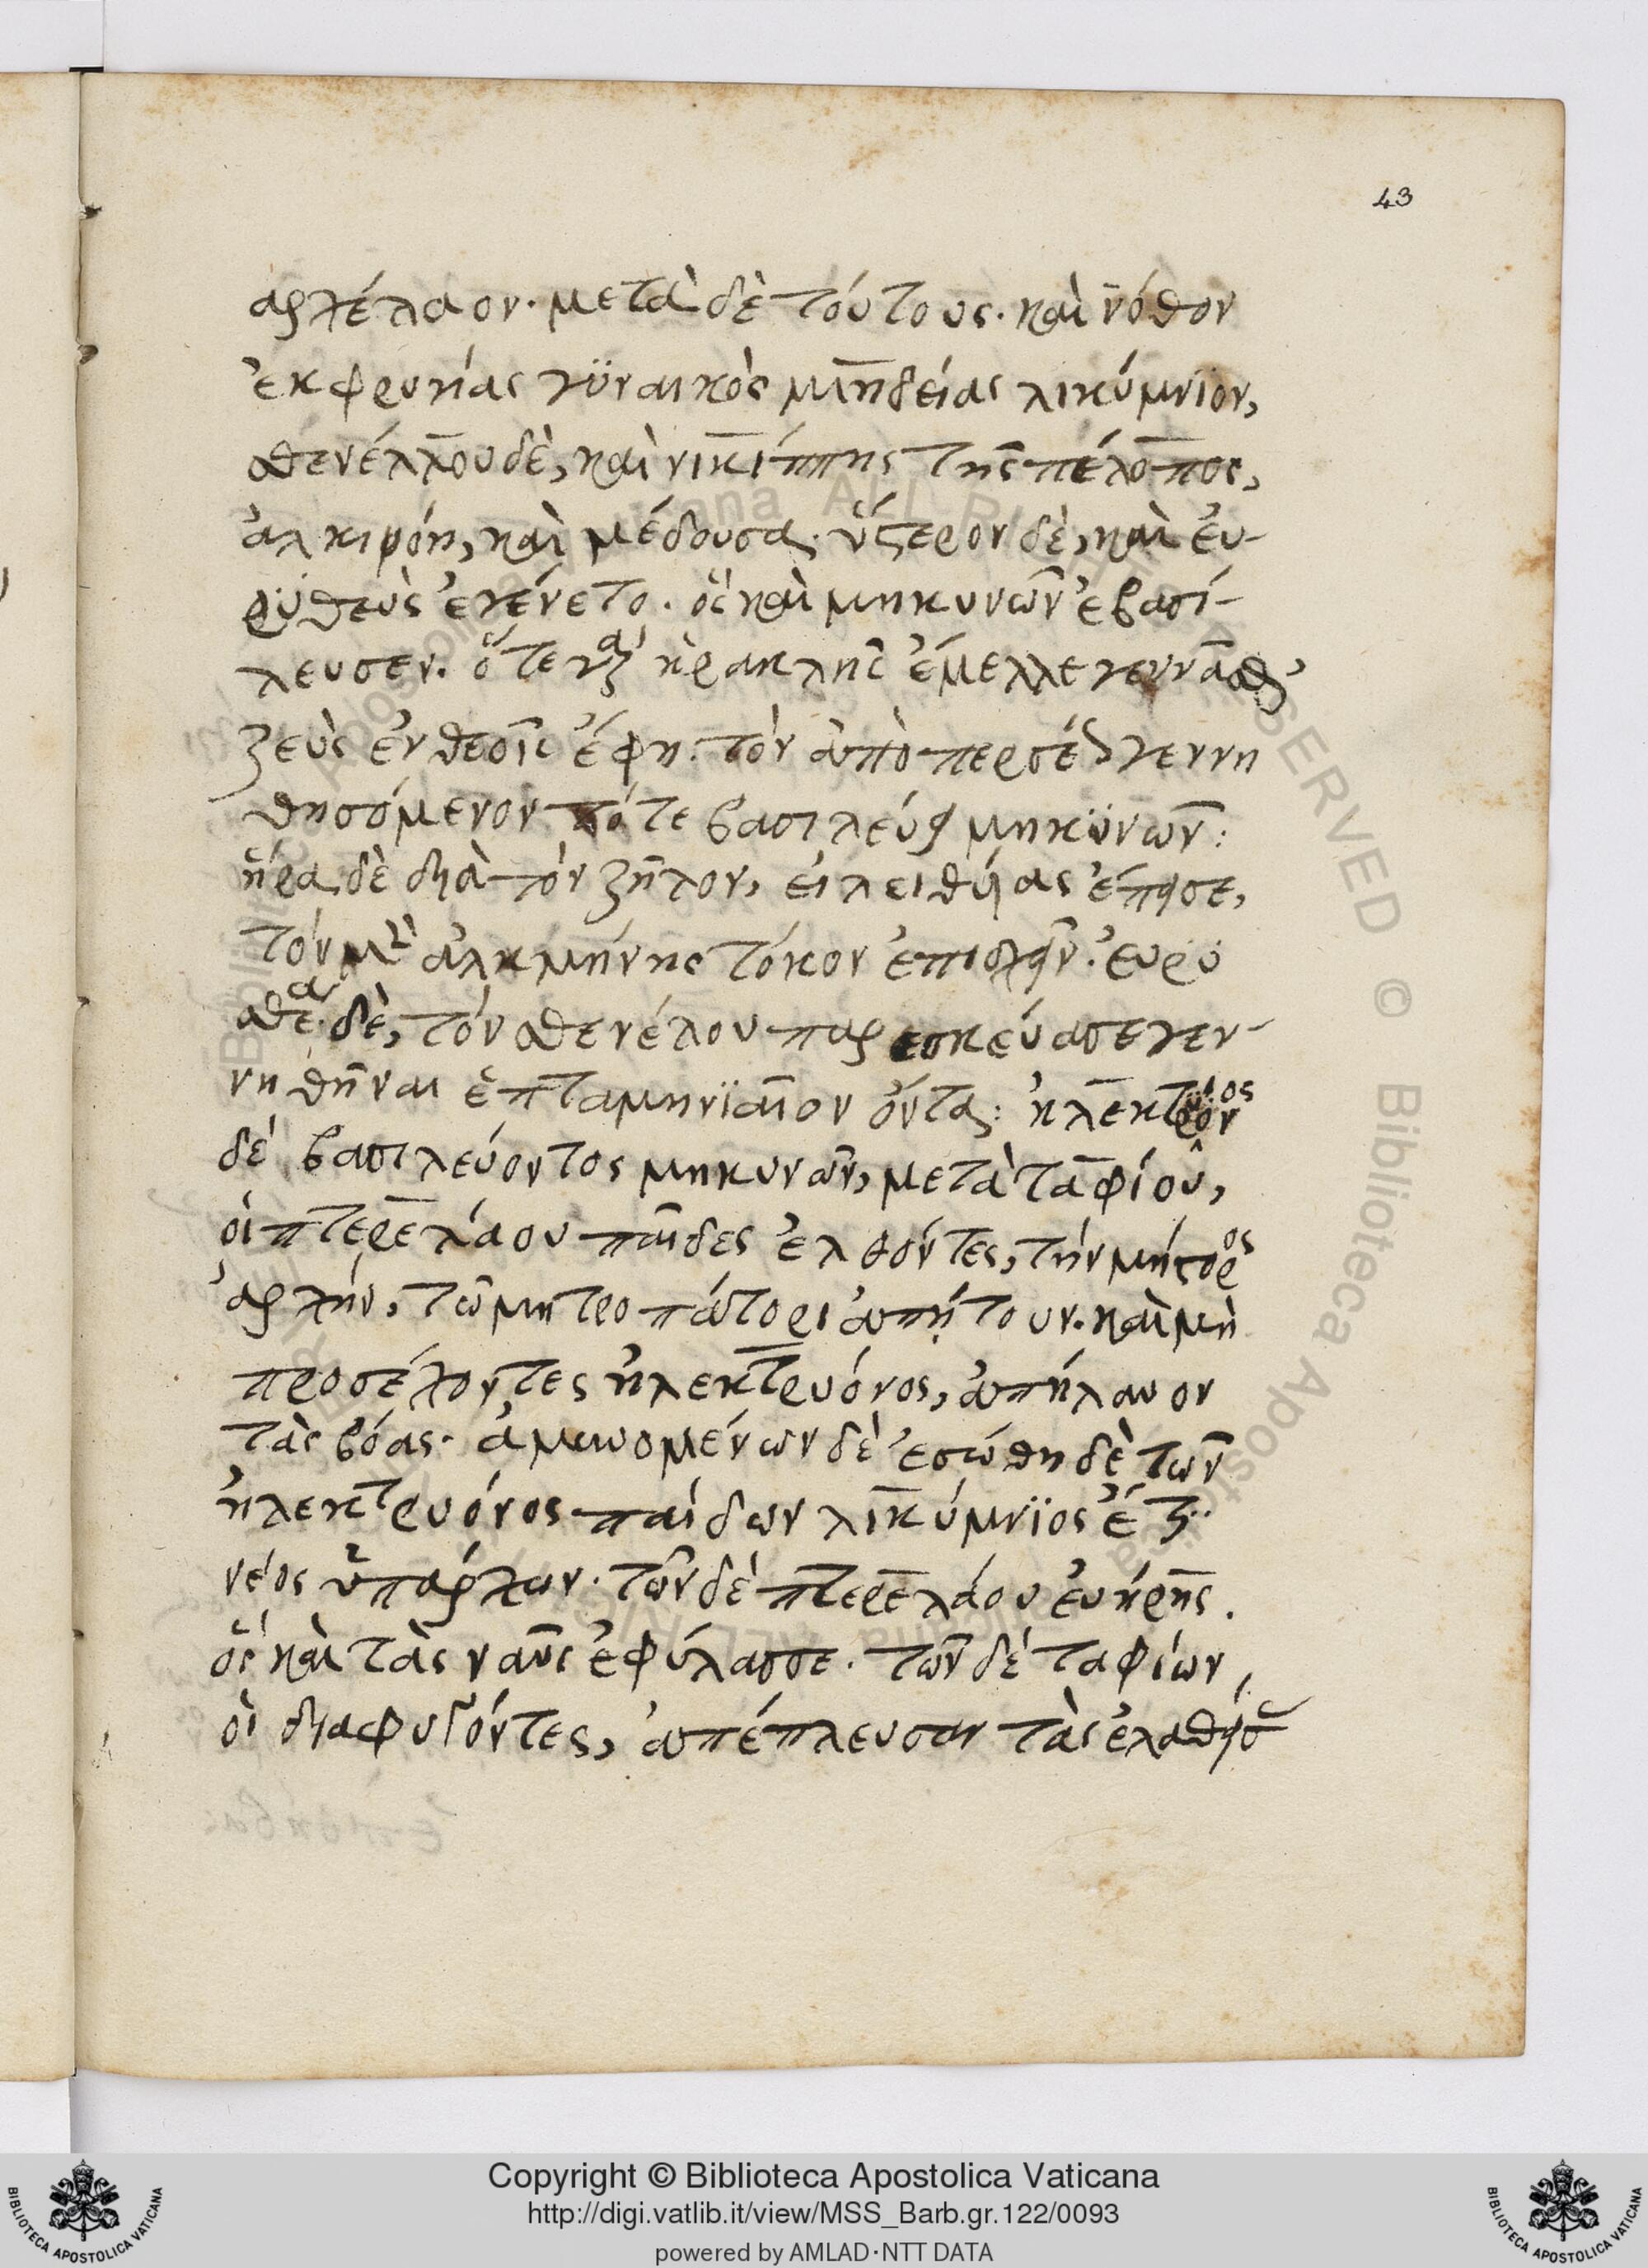 43
ἀρχέλαον· μετὰ δὲ τούτους· καὶ νόθον
ἐκ φρυγίας γϋναικὸς μηδείας λικύμνιον,
σθενέλλου δὲ, καὶ νικίππης τῆς πέλοπος,
ἀλκινόη, καὶ μέδουσα· ὕστερον δὲ, καὶ εὐ-
ρϋσθεὺς ἐγένετο. ὃς καὶ μηκυνῶν ἐβασί-
λευσεν. ὅτε γὰρ ἡρακλῆς ἔμελλε γεννᾶσθαι
ζεὺς ἐν θεοῖς ἔφη. τὸν ἀπὸ περσέως γεννη
θησόμενον τότε βασιλεύειν μηκϋνῶν:
ἥρα δὲ διὰ τὸν ζῆλον, εἰλειθυίας ἔπεισε,
τὸν μὲν ἀλκμήνης τόκον ἐπισχεῖν. εὐρϋ
σθέα δὲ, τὸν σθενέλου παρεσκεύασε γεν-
νηθῆναι ἑπταμηνϊαῖον ὄντα: ἠλεκτρϋόνος
δὲ βασιλεύοντος μηκυνῶν, μετὰ ταφίου,
οἱ πτερελάου παῖδες ἐλθόντες, τὴν μήστορος
ἀρχὴν, τῶ μητροπάτορι ἀπῄτουν. καὶ μὴ
προσέχοντες ἠλεκτρυόνος, ἀπήλαυον
τὰς βόας. ἀμυνομένων δὲ ἐσώθη δὲ τῶν
ἠλεκτρυόνος παίδων λικύμνϊος ἔτι
νέος ὑπάρχων. τῶν δὲ πτερελάου εὐήρης.
ὃς καὶ τὰς ναῦς ἐφύλασσε. τῶν δὲ ταφίων,
οἱ διαφυγόντες, ἀπέπλευσαν τὰς ἐλαθείσας
Copyright © Biblioteca Apostolica Vaticana
http://digi.vatlib.it/view/MSS_Barb.gr.122/0093
powered by AMLAD·NTT DATA